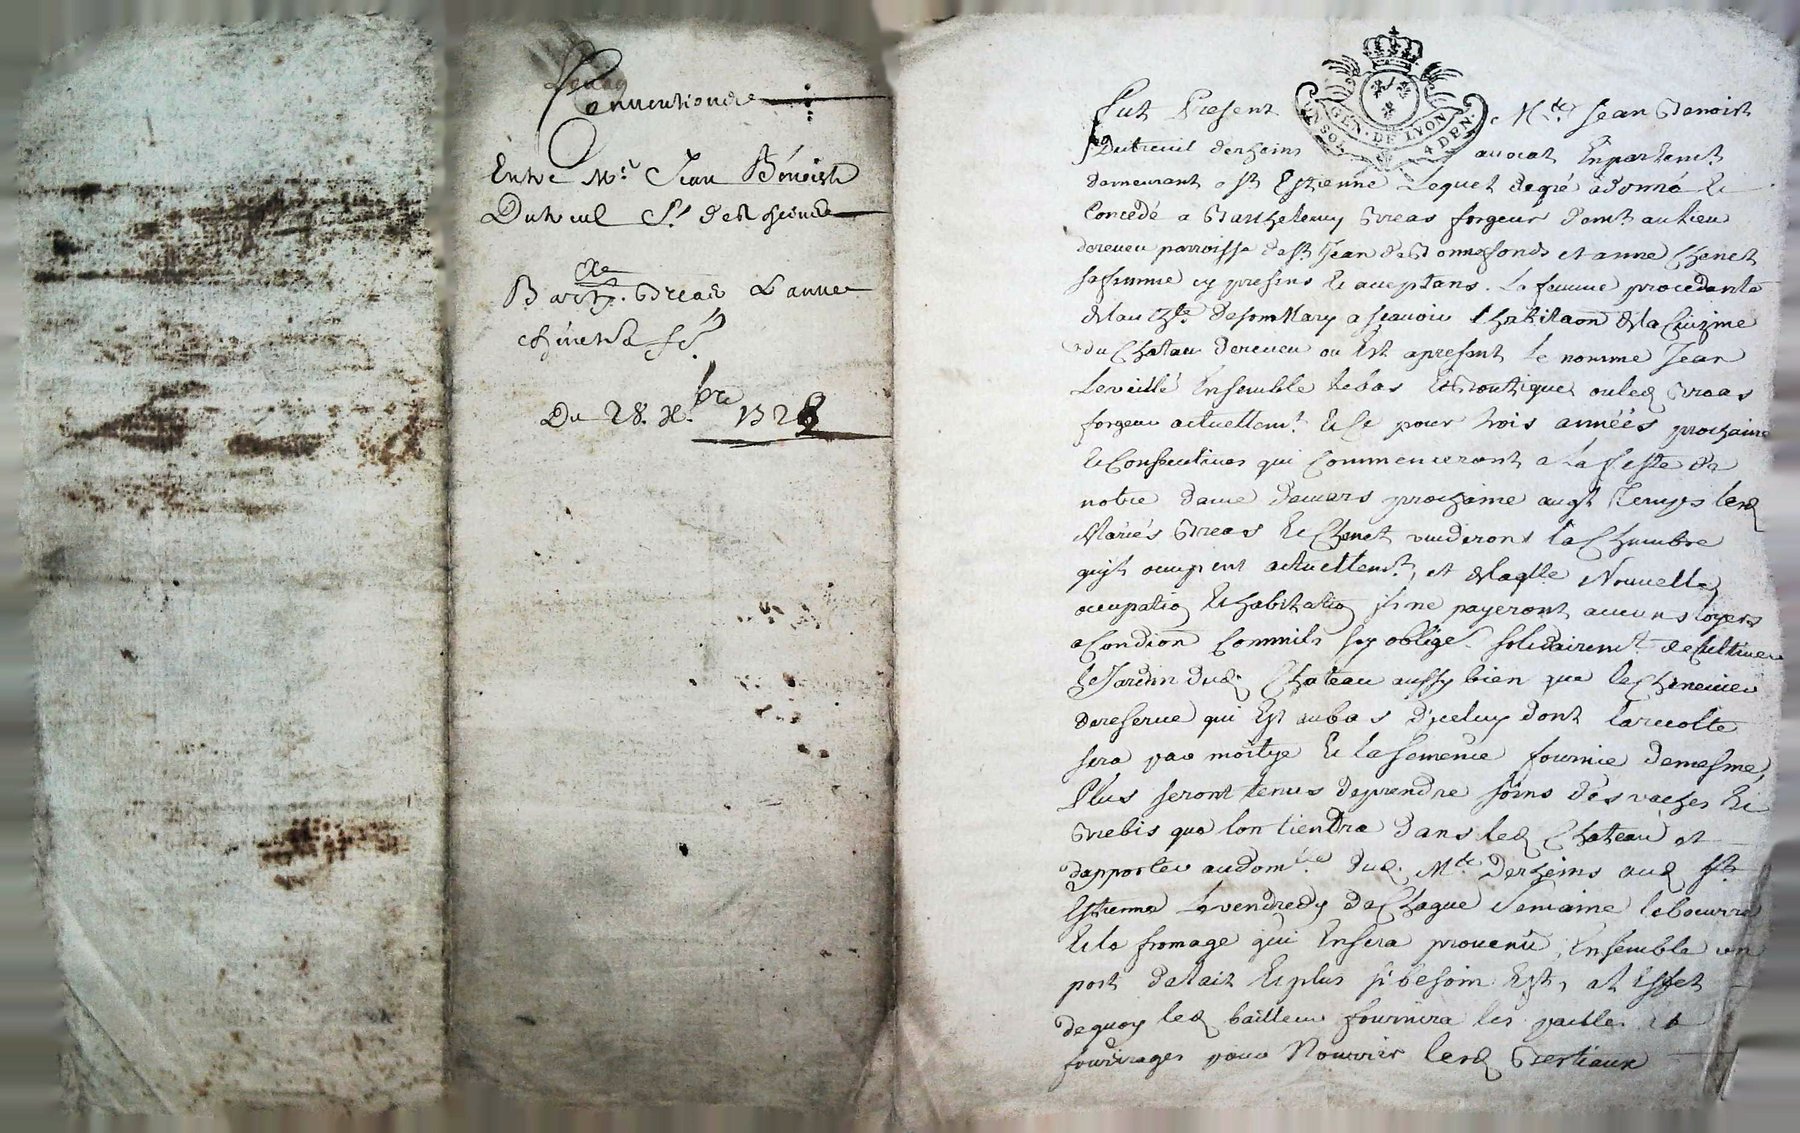 Conventions
Entre Mr. Jean Bénoist
Dutreul Sr. derheins
Barthe. Breas & anne
chenet sa fe.
Du 28. Xbre 1728
GEN. DE LYON
SOL 4 DEN.
Fut Present Mre. Jean Benoist
Dutreuil derheins avocat En parlemt.
demeurant a st Estienne Lequel degré a donné Et
Concedé a Barthelemy Breas forgeur demt. au lieu
dereveu parroisse de st Jean de Bonnefonds et anne Chenet
sa femme cy presens Et aceptans. La femme procedante
de lauthe. de son Mary a scavoir l'habitaon de la Cuizine
du Chatau dereveu ou Est apresent le nomme Jean
Leveillé Ensemble le bas Et Boutique ou led Breas
forgeur actuellemt. Et Ce pour trois années prochaine
Et Consecutives qui Commenceront a La feste de
notre dame demars prochaine auqt Temps lesd
Mariés Breas Et Chenet vuideront la Chambre
qujls ocupent actuellemt., et de laqlle Nouvelle
ocupatio Et habitatio jls ne payeront aucuns loyers
a Condion Commils sy oblige solidairemt de Cultiver
le Jardin dud. Chateau aussy bien que le Chenevier
de reserve qui Est au bas d'jceluy dont la recolte
sera par moitye Et la semence fournie demesme,
Plus seront tenus de prendre soins des vaches Et
Brebis que lon tiendra dans led Chateau et
dapporter au dome. dud. Mre. Derheins aud st
Estienne le vendredy de Chaque Semaine le beurre
Et le fromage qui En sera provenû, Ensemble un
pott de lait Et plus si besoin Est, at Effet
de quoy led bailleur fournira les pailles et
fourrages pour Nourrir lesd Bestiaux